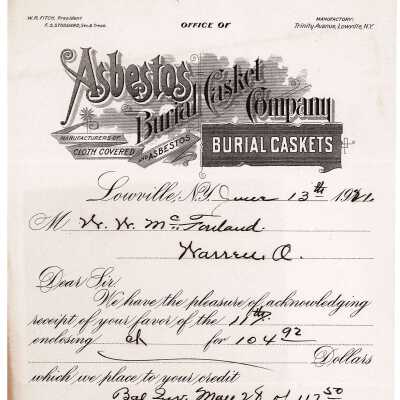 W. R. FITCH, President
F. S. STODDARD, Sec. & Treas.
OFFICE OF
MANUFACTORY:
Trinity Avenue, Lowville, N.Y.
Asbestos
Burial Casket
Company
MANUFACTURERS OF
CLOTH COVERED AND ASBESTOS
BURIAL CASKETS
Lowville, N.Y. June 13th 1921.
M W. W. McFarland.
Warren, O.
Dear Sir:
We have the pleasure of acknowledging
receipt of your favor of the 11th
enclosing ck for 104 92
Dollars
which we place to your credit
Bal Inv. May 28 of 112 50